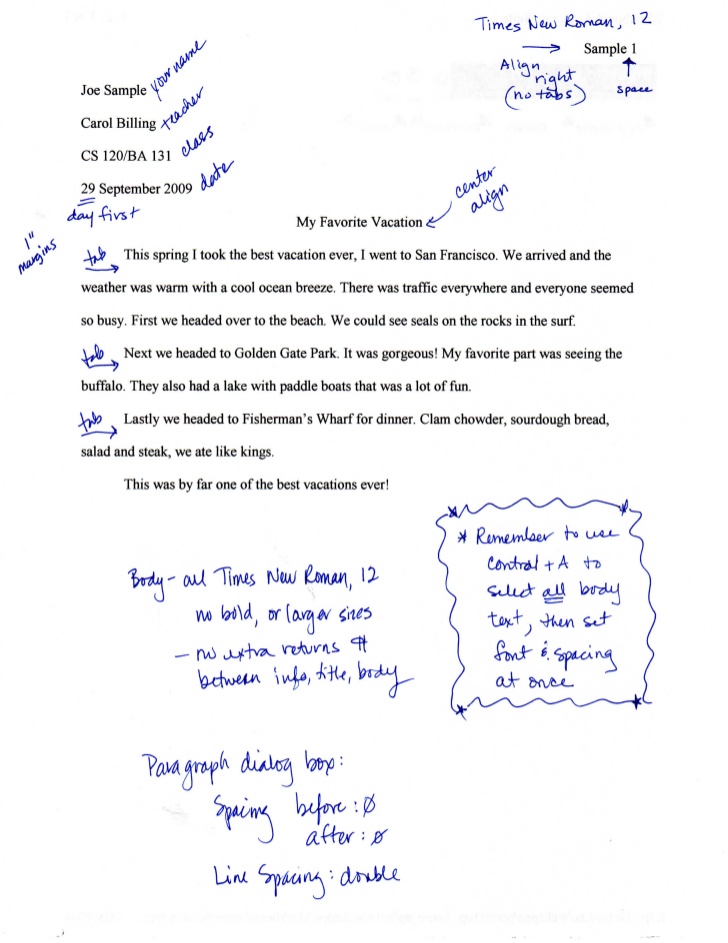 Times New Roman, 12
→ Sample 1
Align right (no tabs)
↑ space
Joe Sample your name
Carol Billing teacher
CS 120/BA 131 class
29 September 2009 date
day first
center align
My Favorite Vacation
1" margins
tab This spring I took the best vacation ever, I went to San Francisco. We arrived and the
weather was warm with a cool ocean breeze. There was traffic everywhere and everyone seemed
so busy. First we headed over to the beach. We could see seals on the rocks in the surf.
tab Next we headed to Golden Gate Park. It was gorgeous! My favorite part was seeing the
buffalo. They also had a lake with paddle boats that was a lot of fun.
tab Lastly we headed to Fisherman's Wharf for dinner. Clam chowder, sourdough bread,
salad and steak, we ate like kings.
This was by far one of the best vacations ever!
* Remember to use
control + A to
select all body
text, then set
font & spacing
at once
Body - all Times New Roman, 12
no bold, or larger sizes
- no extra returns ¶
between info, title, body
Paragraph dialog box:
Spacing before: Ø
after: Ø
Line Spacing: double